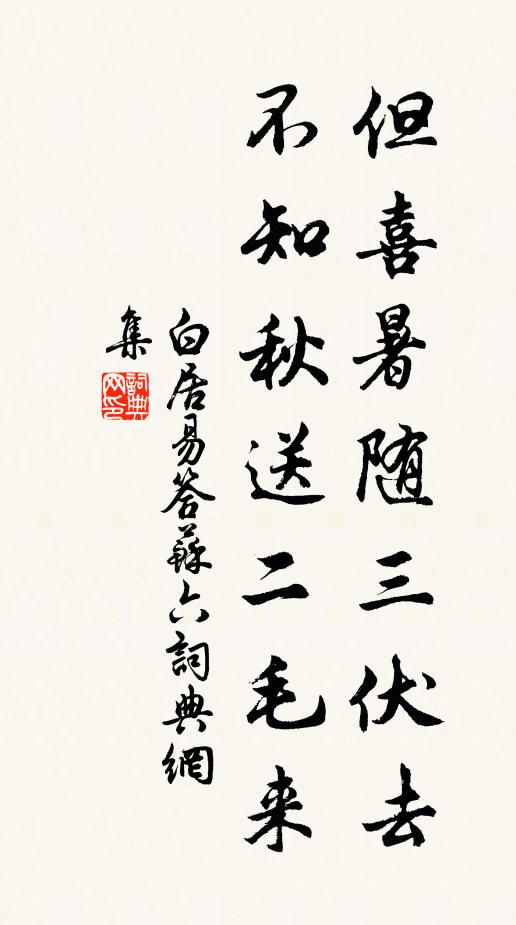 但喜暑随三伏去
不知秋送二毛来
白居易答蘇六詞典網
集
詞典
网印